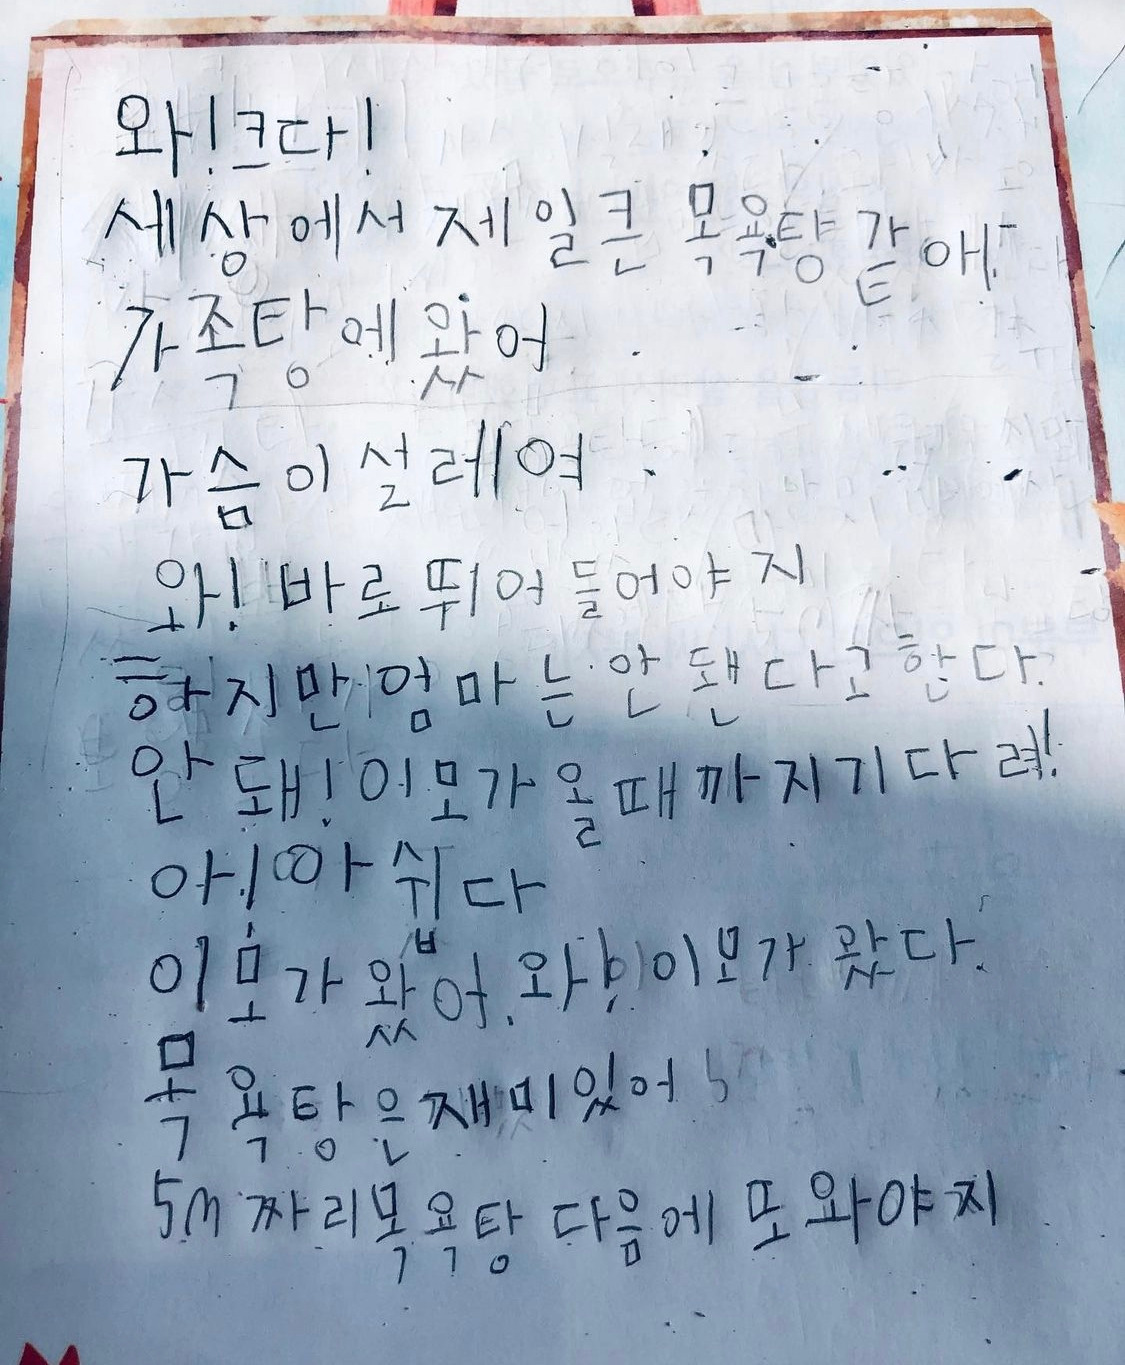 와!크다!
세상에서 제일큰 목욕탕 같애!
가족탕에 왔어
가슴이 설레여
와! 바로 뛰어들어야지
하지만 엄마는 안됀다고한다.
안돼! 이모가 올때까지기다려!
아! 아쉽다
이모가 왔어. 와! 이모가 왔다.
목욕탕은재미있어
5m짜리목욕탕 다음에 또 와야지